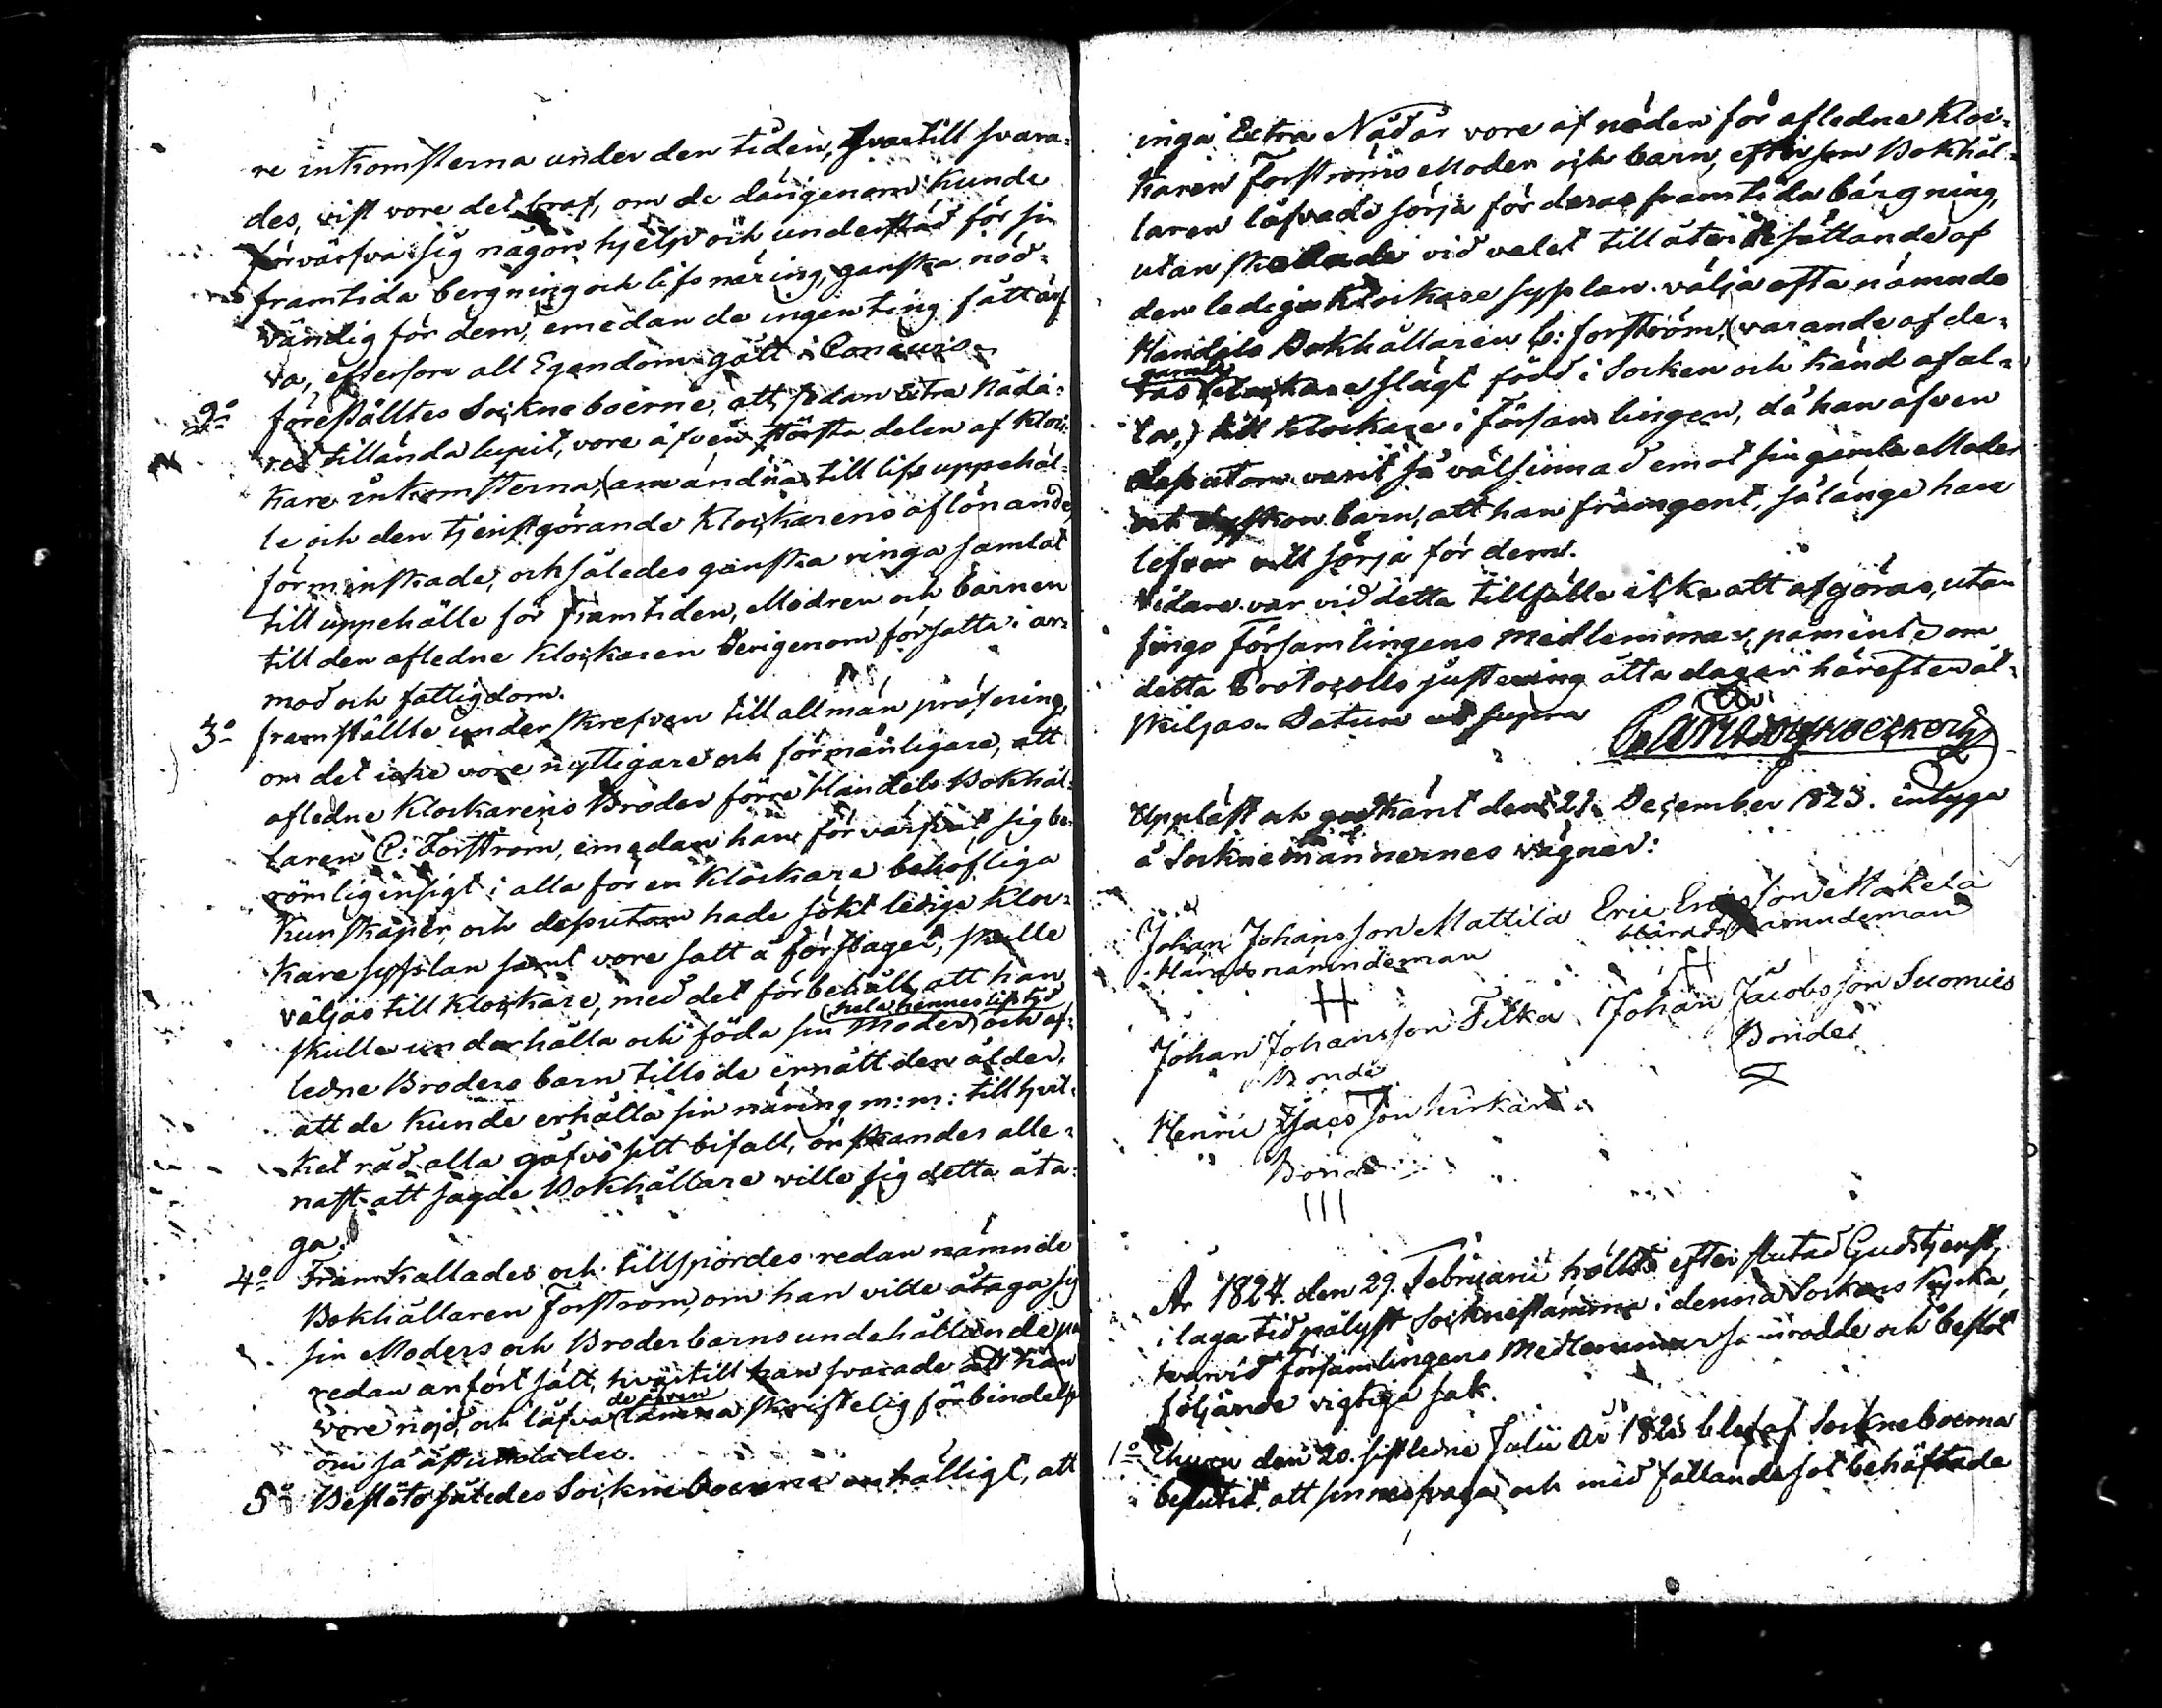 re inkomsterna under den tiden, hvartill svara-
des, vist vore det braf, om de därigenom kunde
förvärfva sig någon hjelp och understöd för sin
framtida bergning och lifsnäring, ganska nöd-
vändig för dem, emedan de ingenting fått ärf
va, eftersom all Egendom gått i Concurs.
2o föreställtes Sockneboerne, att sedan Extra Nådå-
ret tillända lupit, vore äfven största delen af Kloc-
kare inkomsterna, använda till lifs uppehäl-
le och den tjenstgörande Klockarens aflönande,
förminskade, och således ganska ringa samlat
till uppehälle för framtiden, Modren och barnen
till den afledne Klockaren derigenom försatta i ar-
mod och fattigdom.
3o framställte underskrefven till allmän pröfning,
om det icke vore nyttigare och förmånligare, att
afledne Klockarens Broder förre Handels Bokhål-
laren C: Forström, emedan han förvärfvat sig be-
römlig insigt i alla för en Klockare behöfliga
Kunskaper, och dessutom hade sökt lediga Kloc-
kare sysslan samt vore satt å förslaget, skulle
väljas till Klockare, med det förbehåll att han
skulle underhålla och föda sin Moder (hela hennes lifstid) och af-
ledne Broders barn tills de ernått den ålder,
att de kunde erhålla sin näring m:m: till hvil-
ket råd alla gåfvo sitt bifall, önskandes alle-
nast att sagde Bokhållare ville sig detta åta-
ga.
4o Framkallades och tillspordes redan nämnde
Bokhållaren Forström, om han ville åtaga sig
sin Moders och Broderbarns undehållande på
redan anfört sätt, hvartill han svarade att han
vore nöjd, och låfvade äfven lämna skriftelig förbindelse
om så åstundades.
5o Beslöts således Sockneboerne enhälligt, att
inga Extra Nådår vore af nöden för afledne Kloc-
karen Forströms Moder och barn, eftersom Bokhål-
laren låfvade sörja för deras framtida bärgning,
utan skulle de vid valet till återbesättande af
den lediga Klockare sysslan välja ofta nämnde
Handels Bokhållaren C: Forström, (varande af de-
ras gamla Klockare slägt född i Socken och känd af al-
la,) till Klockare i Församlingen, då han äfven
dessutom varit så välsinnad emot sin gamla Moder
och syskon barn, att han främgent, så länge han
lefver vill sörja för dem.
Vidare var vid detta tillfälle icke att afgöras, utan
fingo Församlingens Medlemmar, påminte om
detta Protocolls justering åtta dagar härefter åt-
skiljas. Datum ut supra

Uppläst och godkänt den 21. December 1823. intyga
å Socknemännernes vägnar:
Johan Johansson Mattila Eric Ericsson Mäkelä
Häradsnämndeman Häradsnämndeman
Johan Johansson Tilka Johan Jacobsson Suomies
Bonde Bonde
Henric
Bonde
År 1824. den 29. Februarii hölts efter slutad Gudstjenst,
i laga tid pålyst Socknestämma i denna Sockens Kyrka,
hvarvid Församlingens Medlemmar så inrådde och beslöt
följande vigtiga sak.
1o Ehuru den 20. sistledne Julii År 1823 blef af Sockneboerna
beslutit, att sinnesvaga och med fallandesot behäftade